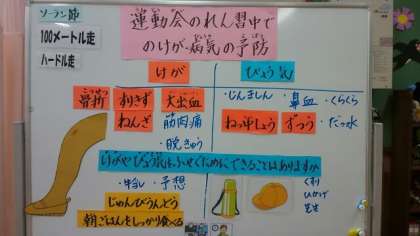 ソーラン節
100メートル走
ハードル走
運動会のれん習中で
のけが・病気の予防
けが
びょう気
骨折
すりきず
大出血
・じんましん
・鼻血
・くらくら
ねんざ
筋肉痛
ねっ中しょう
ずつう
・だっ水
・脱きゅう
けがやびょう気をふせぐためにできることはありますか
・予想
くすり
ひかげ
先生
じゅんびうんどう
朝ごはんをしっかり食べる